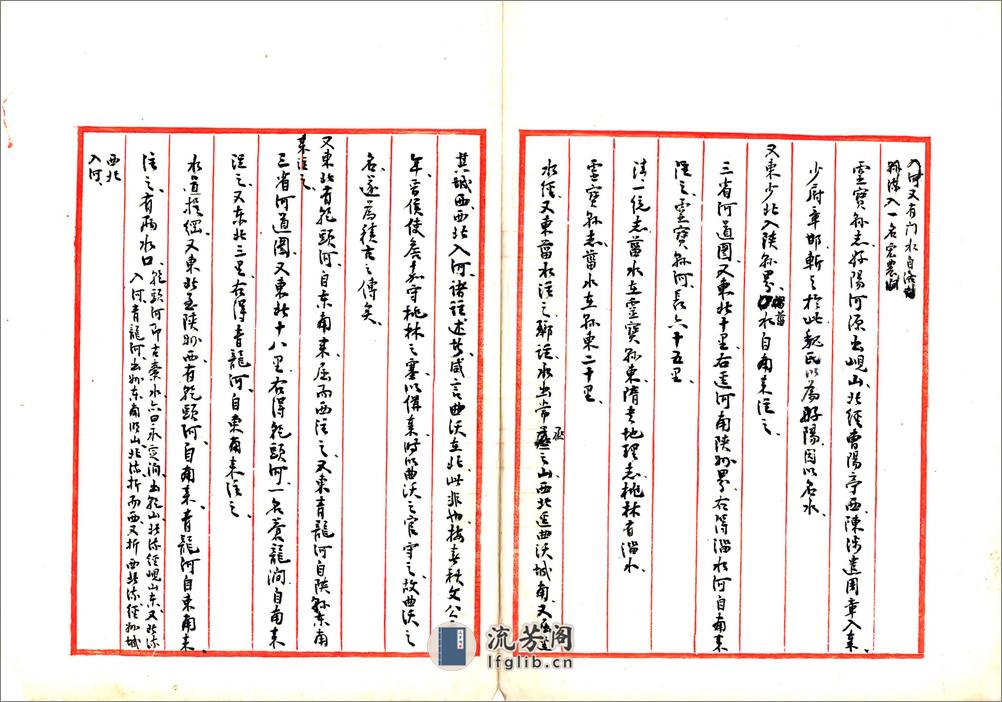 入河又有门水自洛
靈寶縣志好陽河源出峴山北經曹陽亭西陳涉遣周章入秦
少府章邯斬之於此魏氏以為好陽因以名水
又東少北入陝縣界菑水自南來注之
三省河道圖又東北十里右逕河南陝州界右得淄水河自南來
注之靈寶縣河長六十五里
清一統志菑水在靈寶縣東隋書地理志桃林有淄水
靈寶縣志菑水在縣東二十里
水經又東菑水注之酈注水出常烝之山西北逕曲沃城南又屈逕
其城西西北入河諸注述者咸言曲沃在北此非也按春秋文公
年晉侯使詹嘉守桃林之塞以備秦時以曲沃之官守之故曲沃之
名遂為積古之傳矣
又東北有乾頭河自東南來屈而西注之又東青龍河自陝縣東南
來注之
三省河道圖又東北十八里右得乾頭河一名蒼龍澗自南來
注之又东北三里右得青龍河自東南来注之
水道提綱又東北至陝州西有乾頭河自南来青龍河自東南来
注之有兩水口
乾頭河即古橐水亦曰永定澗出乾山北流經峴山東又北流
入河青龍河出州東南山北流折而西又折西北流經州城
西北
入河
流芳阁
lfglib.cn